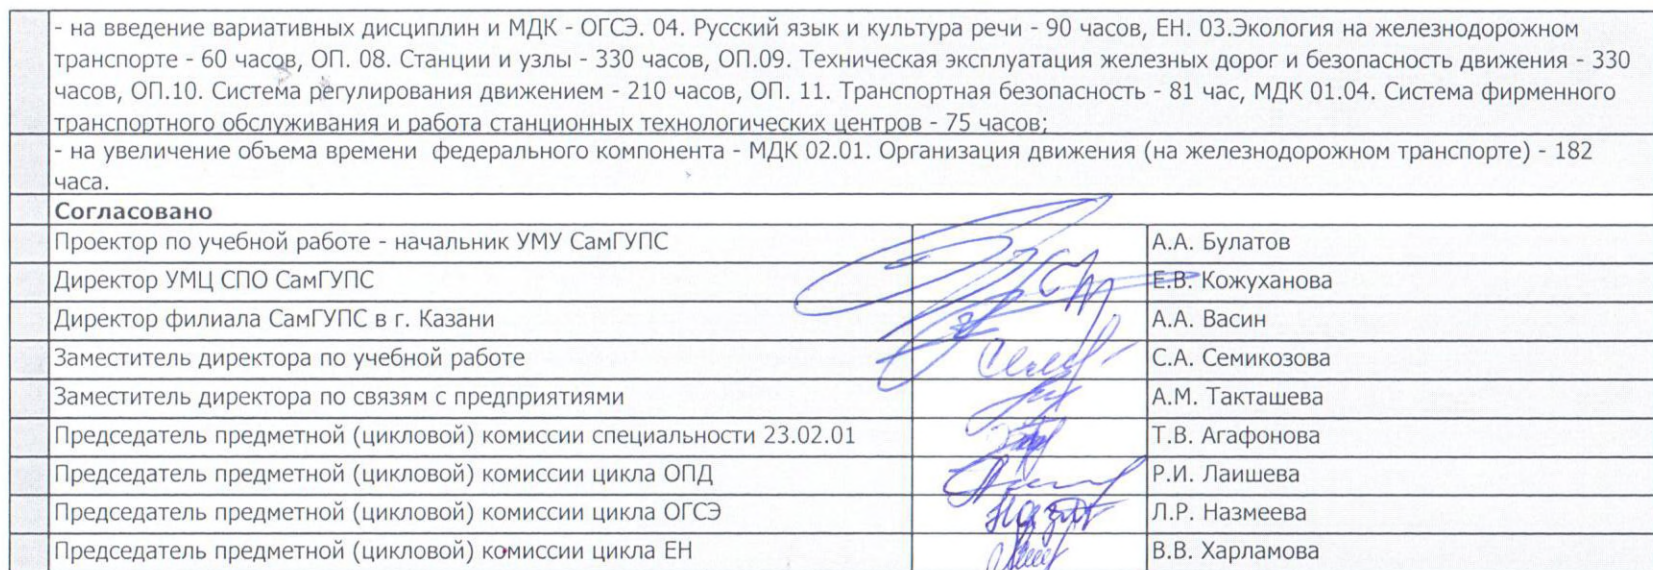 - на введение вариативных дисциплин и МДК - ОГСЭ. 04. Русский язык и культура речи - 90 часов, ЕН. 03.Экология на железнодорожном
транспорте - 60 часов, ОП. 08. Станции и узлы - 330 часов, ОП.09. Техническая эксплуатация железных дорог и безопасность движения - 330
часов, ОП.10. Система регулирования движением - 210 часов, ОП. 11. Транспортная безопасность - 81 час, МДК 01.04. Система фирменного
транспортного обслуживания и работа станционных технологических центров - 75 часов;
- на увеличение объема времени федерального компонента - МДК 02.01. Организация движения (на железнодорожном транспорте) - 182
часа.
Согласовано
Проектор по учебной работе - начальник УМУ СамГУПС А.А. Булатов
Директор УМЦ СПО СамГУПС Е.В. Кожуханова
Директор филиала СамГУПС в г. Казани А.А. Васин
Заместитель директора по учебной работе С.А. Семикозова
Заместитель директора по связям с предприятиями А.М. Такташева
Председатель предметной (цикловой) комиссии специальности 23.02.01 Т.В. Агафонова
Председатель предметной (цикловой) комиссии цикла ОПД Р.И. Лаишева
Председатель предметной (цикловой) комиссии цикла ОГСЭ Л.Р. Назмеева
Председатель предметной (цикловой) комиссии цикла ЕН В.В. Харламова